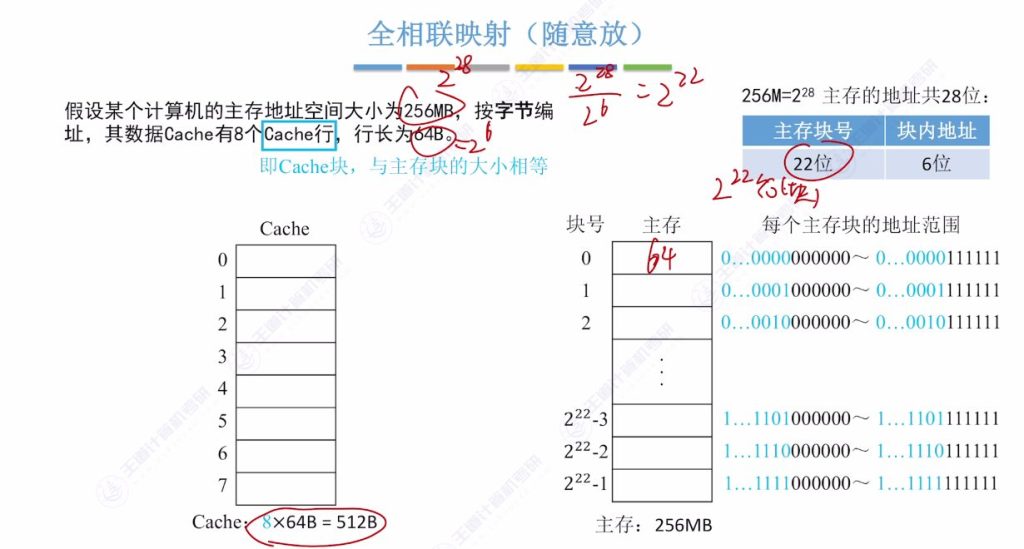 全相联映射（随意放）
2²⁸
2²⁸/2⁶ = 2²²
假设某个计算机的主存地址空间大小为256MB，按字节编
址，其数据Cache有8个Cache行，行长为64B。
=2⁶
即Cache块，与主存块的大小相等
256M=2²⁸ 主存的地址共28位：
主存块号 块内地址
22位 6位
2²²个(块)
Cache
0
1
2
3
4
5
6
7
Cache：8×64B = 512B
块号 主存 每个主存块的地址范围
0 64 0…0000000000～ 0…0000111111
1 0…0001000000～ 0…0001111111
2 0…0010000000～ 0…0010111111
⋮
2²²-3 1…1101000000～ 1…1101111111
2²²-2 1…1110000000～ 1…1110111111
2²²-1 1…1111000000～ 1…1111111111
主存：256MB
王道计算机考研